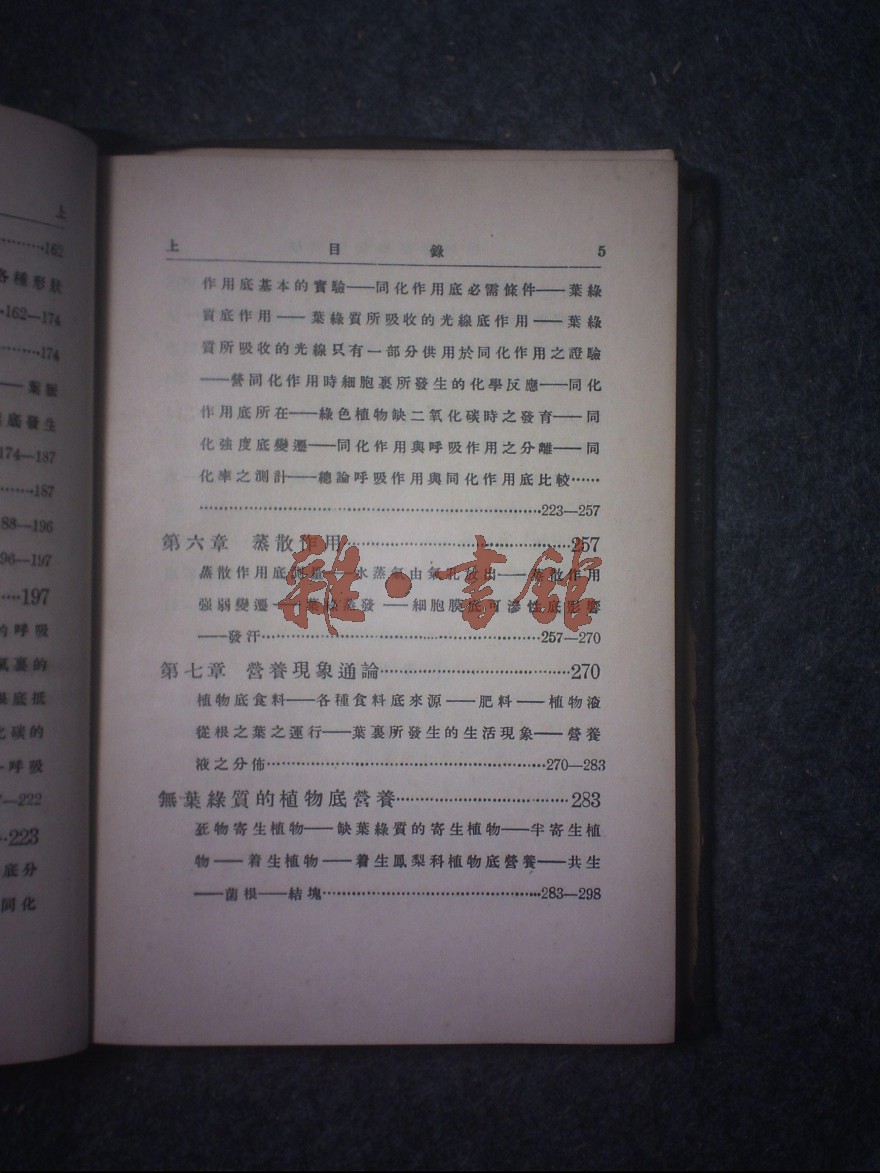 上
162
各種形狀
162—174
174
——葉脈
底發生
174—187
187
88—196
96—197
197
的呼吸
氣裏的
底抵
化碳的
呼吸
—222
223
底分
同化
上 目錄 5
作用底基本的實驗——同化作用底必需條件——葉綠
質底作用——葉綠質所吸收的光線底作用——葉綠
質所吸收的光線只有一部分供用於同化作用之證驗
——營同化作用時細胞裏所發生的化學反應——同化
作用底所在——綠色植物缺二氧化碳時之發育——同
化強度底變遷——同化作用與呼吸作用之分離——同
化率之測計——總論呼吸作用與同化作用底比較……
……223—257
第六章 蒸散作用……257
蒸散作用底測量——水蒸氣由氣孔放出——蒸散作用
强弱變遷——葉綠蒸發——細胞膜底可滲性底影響
——發汗……257—270
第七章 營養現象通論……270
植物底食料——各種食料底來源——肥料——植物液
從根之葉之運行——葉裏所發生的生活現象——營養
液之分佈……270—283
無葉綠質的植物底營養……283
死物寄生植物——缺葉綠質的寄生植物——半寄生植
物——着生植物——着生鳳梨科植物底營養——共生
——菌根——結塊……283—298
雜·書館